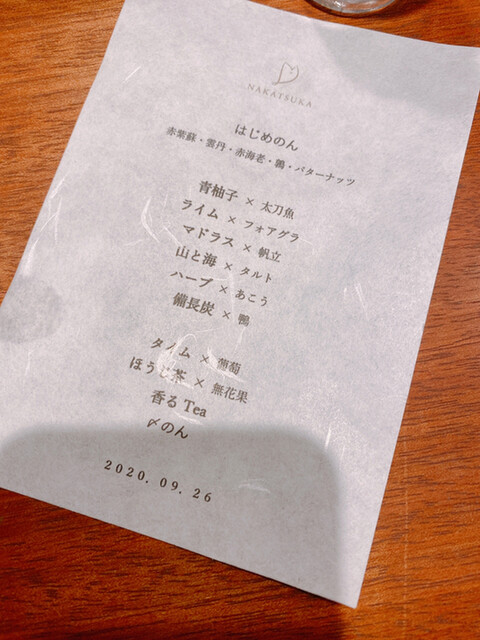 NAKATSUKA
はじめのん
赤紫蘇・雲丹・赤海老・鶉・バターナッツ
青柚子 × 太刀魚
ライム × フォアグラ
マドラス × 帆立
山と海 × タルト
ハーブ × あこう
備長炭 × 鴨
タイム × 葡萄
ほうじ茶 × 無花果
香るTea
〆のん
2020. 09. 26